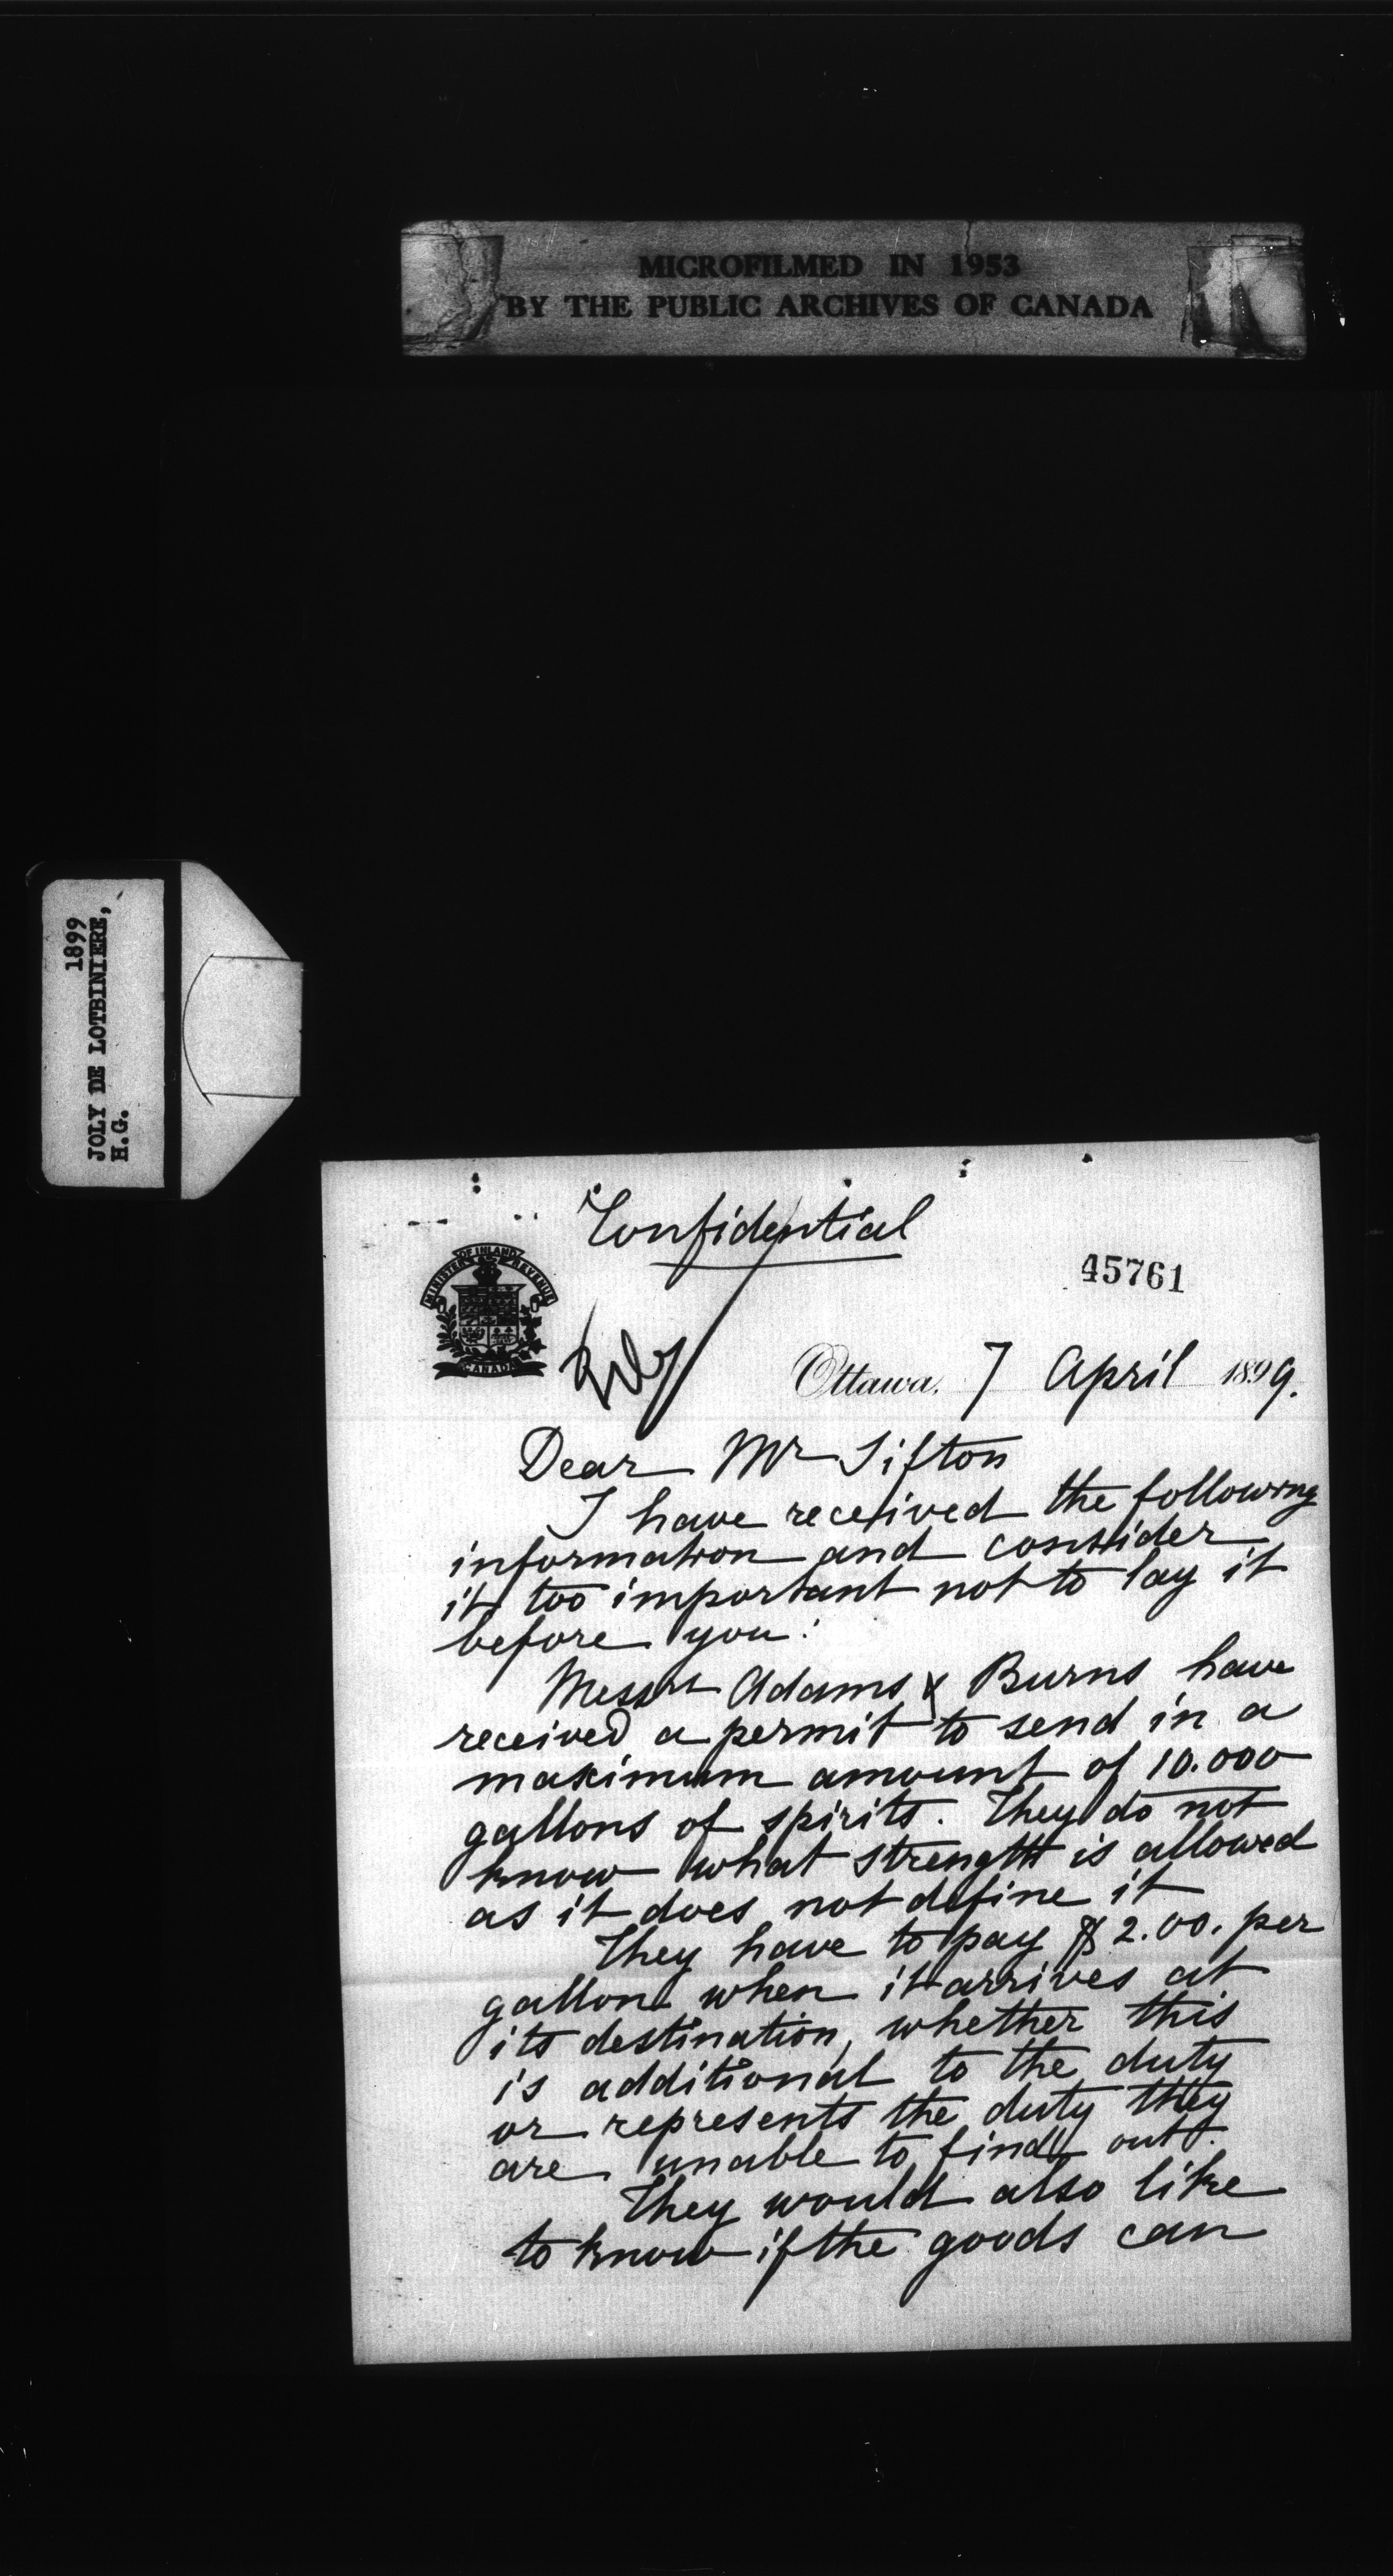 MICROFILMED IN 1953
BY THE PUBLIC ARCHIVES OF CANADA
1899
JOLY DE LOTBINIERE,
H.G.
Confidential
45761
MINISTER OF INLAND REVENUE
CANADA
Ottawa, 7 April 1899.
Dear Mr Sifton
I have received the following
information and consider
it too important not to lay it
before you:
Messrs Adams & Burns have
received a permit to send in a
maximum amount of 10.000
gallons of spirits. They do not
know what strength is allowed
as it does not define it
They have to pay $2.00. per
gallon when it arrives at
its destination, whether this
is additional to the duty
or represents the duty they
are unable to find out.
They would also like
to know if the goods can